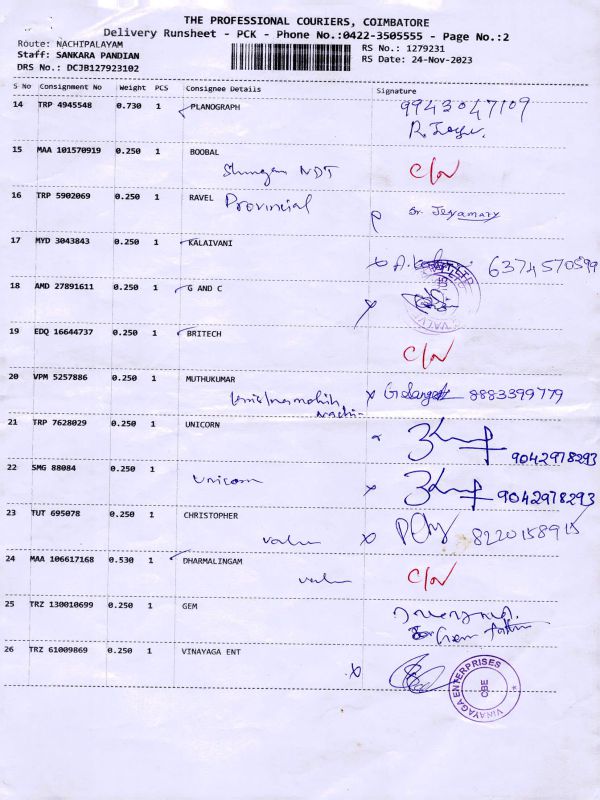 THE PROFESSIONAL COURIERS, COIMBATORE
Delivery Runsheet - PCK - Phone No.:0422-3505555 - Page No.:2
Route: NACHIPALAYAM
Staff: SANKARA PANDIAN
DRS No.: DCJB127923102
RS No.: 1279231
RS Date: 24-Nov-2023
S No Consignment No Weight PCS Consignee Details Signature
14 TRP 4945548 0.730 1 PLANOGRAPH 9943047109
15 MAA 101570919 0.250 1 BOOBAL
NDT C/N
16 TRP 5902069 0.250 1 RAVEL Provincial
Sr. Jeyamary
17 MYD 3043843 0.250 1 KALAIVANI
6374570599
18 AMD 27891611 0.250 1 G AND C
19 EDQ 16644737 0.250 1 BRITECH
C/N
20 VPM 5257886 0.250 1 MUTHUKUMAR
8883399779
21 TRP 7628029 0.250 1 UNICORN
9042978293
22 SMG 88084 0.250 1
Unicorn 9042978293
23 TUT 695078 0.250 1 CHRISTOPHER
value 8220158915
24 MAA 106617168 0.530 1 DHARMALINGAM
value C/N
25 TRZ 130010699 0.250 1 GEM
26 TRZ 61009869 0.250 1 VINAYAGA ENT
VINAYAGA ENTERPRISES
CBE